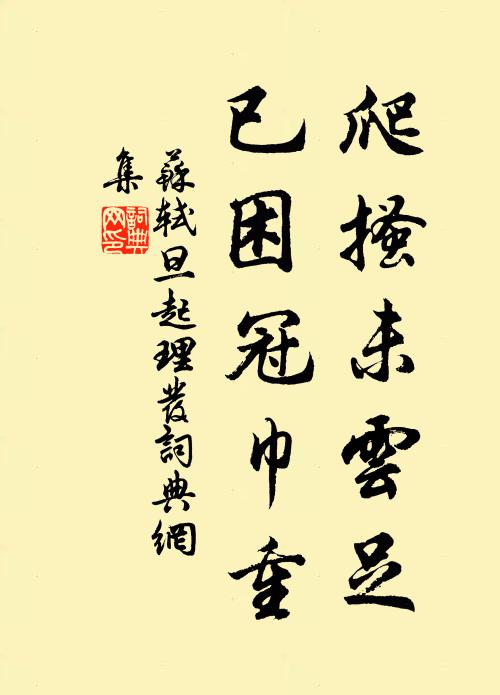 爬搔未雲足
已困冠巾重
蘇軾旦起理發詞典網
集
詞典
网印